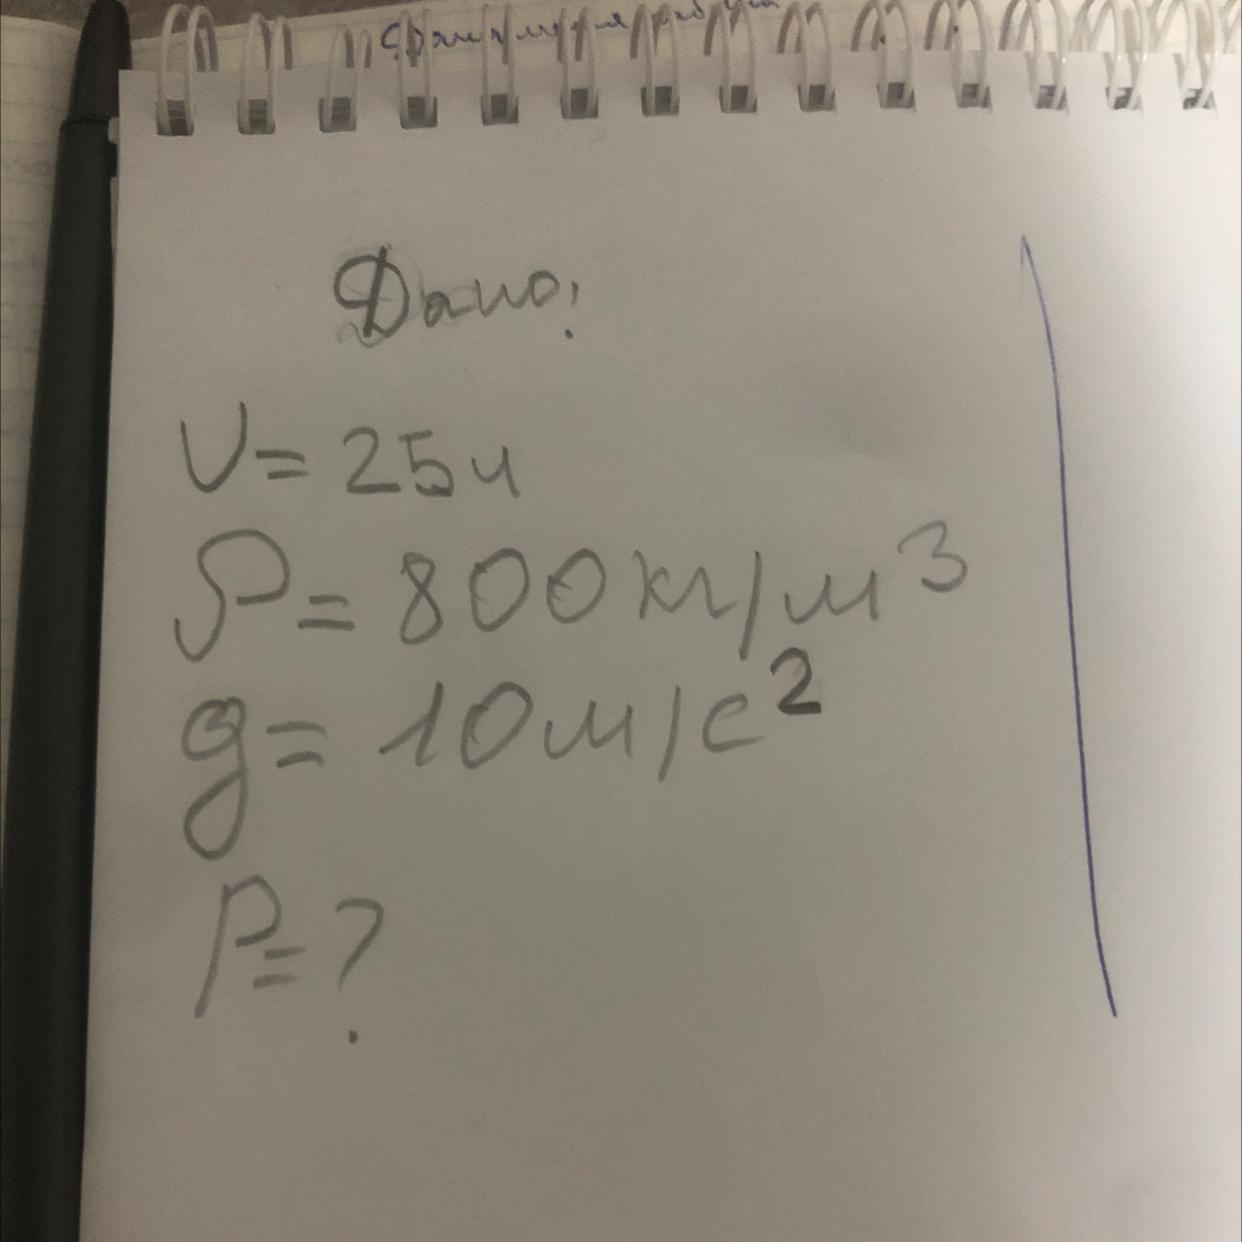 Дано:
V= 25ч
ρ= 800кг/м³
g= 10м/с²
P= ?